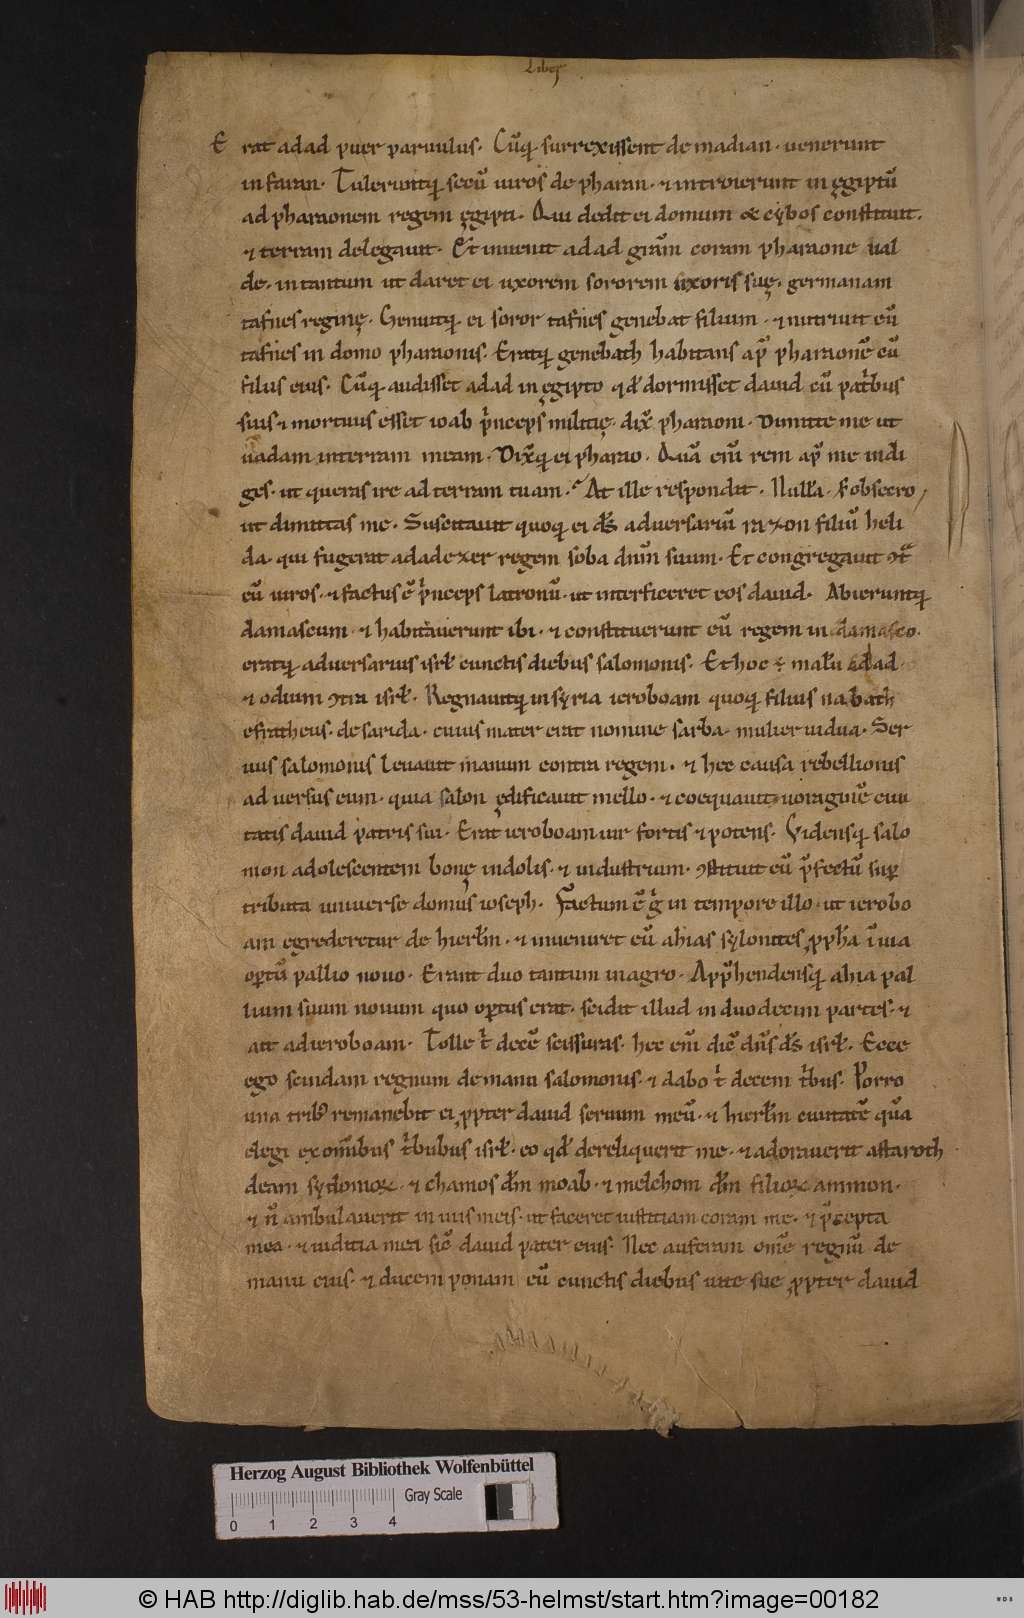 Liber
Erat adad puer paruulus. Cūq; surrexissent de madian. uenerunt
in faran. Tuleruntq; secū uiros de pharan. ⁊ introierunt in ęgiptū
ad pharaonem regem ęgipti. Qui dedit ei domum & cybos constituit.
⁊ terram delegauit. Et inuenit adad grām coram pharaone ual
de. in tantum ut daret ei uxorem sororem uxoris suę. germanam
tafnes reginę. Genuitq; ei soror tafnes genebat filium. ⁊ nutriuit eū
tafnes in domo pharaonis. Eratq; genebath habitans ap̄ pharaonē cū
filiis eius. Cūq; audisset adad in ęgipto qd̄ dormisset dauid cū pat̄bus
suis ⁊ mortuus esset ioab p̄nceps militię. dix̄ pharaoni. Dimitte me ut
uadam in terram meam. Dix̄q; ei pharao. Qua enī rem ap̄ me indi
ges. ut queras ire ad terram tuam. At ille respondit. Nulla. s; obsecro
ut dimittas me. Suscitauit quoq; ei ds̄ aduersariū razon filiū heli
da. qui fugerat adadezer regem soba dnm̄ suum. Et congregauit ꝯt̄
eū uiros. ⁊ factus ē p̄nceps latronū. ut interficeret eos dauid. Abieruntq;
damascum. ⁊ habitauerunt ibi. ⁊ constituerunt eū regem in damasco.
eratq; aduersarius isrł cunctis diebus salomonis. Et hoc ÷ malū adad.
⁊ odium ꝯtra isrł. Regnauitq; in syria ieroboam quoq; filius nabath
efratheus. de sarida. cuius mater erat nomine sarba. mulier uidua. Ser
uus salomonis leuauit manum contra regem. ⁊ hec causa rebellionis
aduersus eum. quia salon ędificauit mello. ⁊ coequauit uoraginē ciui
tatis dauid patris sui. Erat ieroboam uir fortis ⁊ potens. Vidensq; salo
mon adolescentem bonę indolis. ⁊ industrium. ꝯstituit eū p̄fectū sup̄
tributa uniuerse domus ioseph. Factum ē g̊ in tempore illo. ut ierobo
am egrederetur de hierłm. ⁊ inueniret eū ahias sylonites ꝓpha ī uia
optū pallio nouo. Erant duo tantum in agro. App̄hendensq; ahia pal
lium suum nouum quo optus erat. scidit illud in duodecim partes. ⁊
ait ad ieroboam. Tolle t̄ decē scissuras. hec enī diē dn̄s ds̄ isrł. Ecce
ego scindam regnum de manu salomonis. ⁊ dabo t̄ decem t̄bus. Porro
una tribꝰ remanebit ei ꝓpter dauid seruum meū. ⁊ hierłm ciuitatē quā
elegi ex om̄ibus t̄bubus isrł. eo qd̄ dereliquerit me. ⁊ adorauerit astaroth
deam sydonioꝝ. ⁊ chamos dm̄ moab. ⁊ melchom dm̄ filioꝝ ammon.
⁊ n̄ ambulauerit in uiis meis. ut faceret iustitiam coram me. ⁊ p̄cepta
mea. ⁊ iuditia mea sic̄ dauid pater eius. Nec auferam omē regnū de
manu eius. ⁊ ducem ponam eū cunctis diebus uite sue ꝓpter dauid
Herzog August Bibliothek Wolfenbüttel
Gray Scale
0 1 2 3 4
© HAB http://diglib.hab.de/mss/53-helmst/start.htm?image=00182